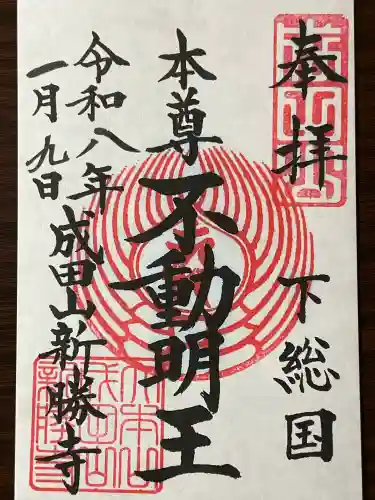 奉拝
下総国
本尊不動明王
令和八年
一月九日
成田山新勝寺